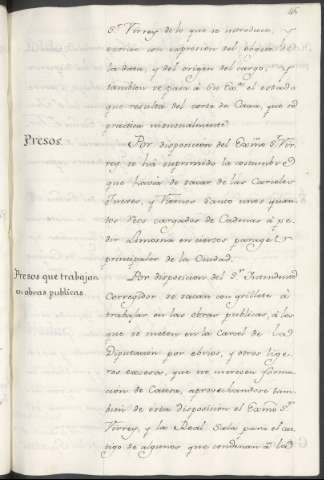 46
Sr. Virrey de lo que se introduce, y
existe con expresion del objeto de
la data, y del origen del cargo, y
tambien se pasa á Su Exa. el estado
que resulta del corte de Caxa, que se
practica mensualmente
Presos.
Por disposicion del Exmo. Sr. Vir-
rey se ha suprimido la costumbre
que havia de sacar de las Carceles
Jueves, y Viernes Santo unos quan-
tos Reos cargados de Cadenas á pe-
dir Limosna en varios parages
principales de la Ciudad.
Presos que trabajan
en obras publicas.
Por disposicion del Sr. Intendente
Corregidor se sacan con grillete á
trabajar en las obras publicas, á los
que se meten en la Carcel de la
Diputacion por ebrios, y otros lige-
ros excesos, que no merecen forma-
cion de Causa, aprovechandose tam-
bien de esta disposicion el Exmo. Sr.
Virrey, y la Real Sala para el cas-
tigo de algunos que condenan á la